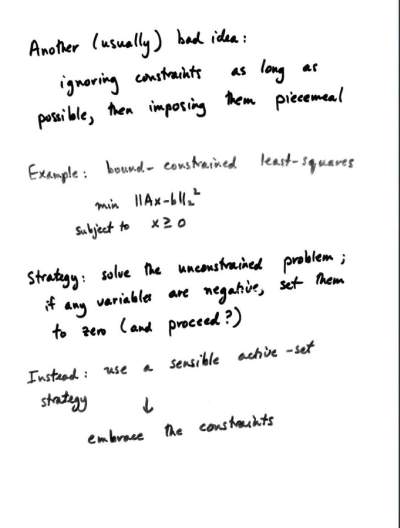 Another (usually) bad idea:
ignoring constraints as long as
possible, then imposing them piecemeal
Example: bound-constrained least-squares
min ||Ax-b||₂²
subject to x ≥ 0
Strategy: solve the unconstrained problem;
if any variables are negative, set them
to zero (and proceed?)
Instead: use a sensible active-set
strategy ↓
embrace the constraints